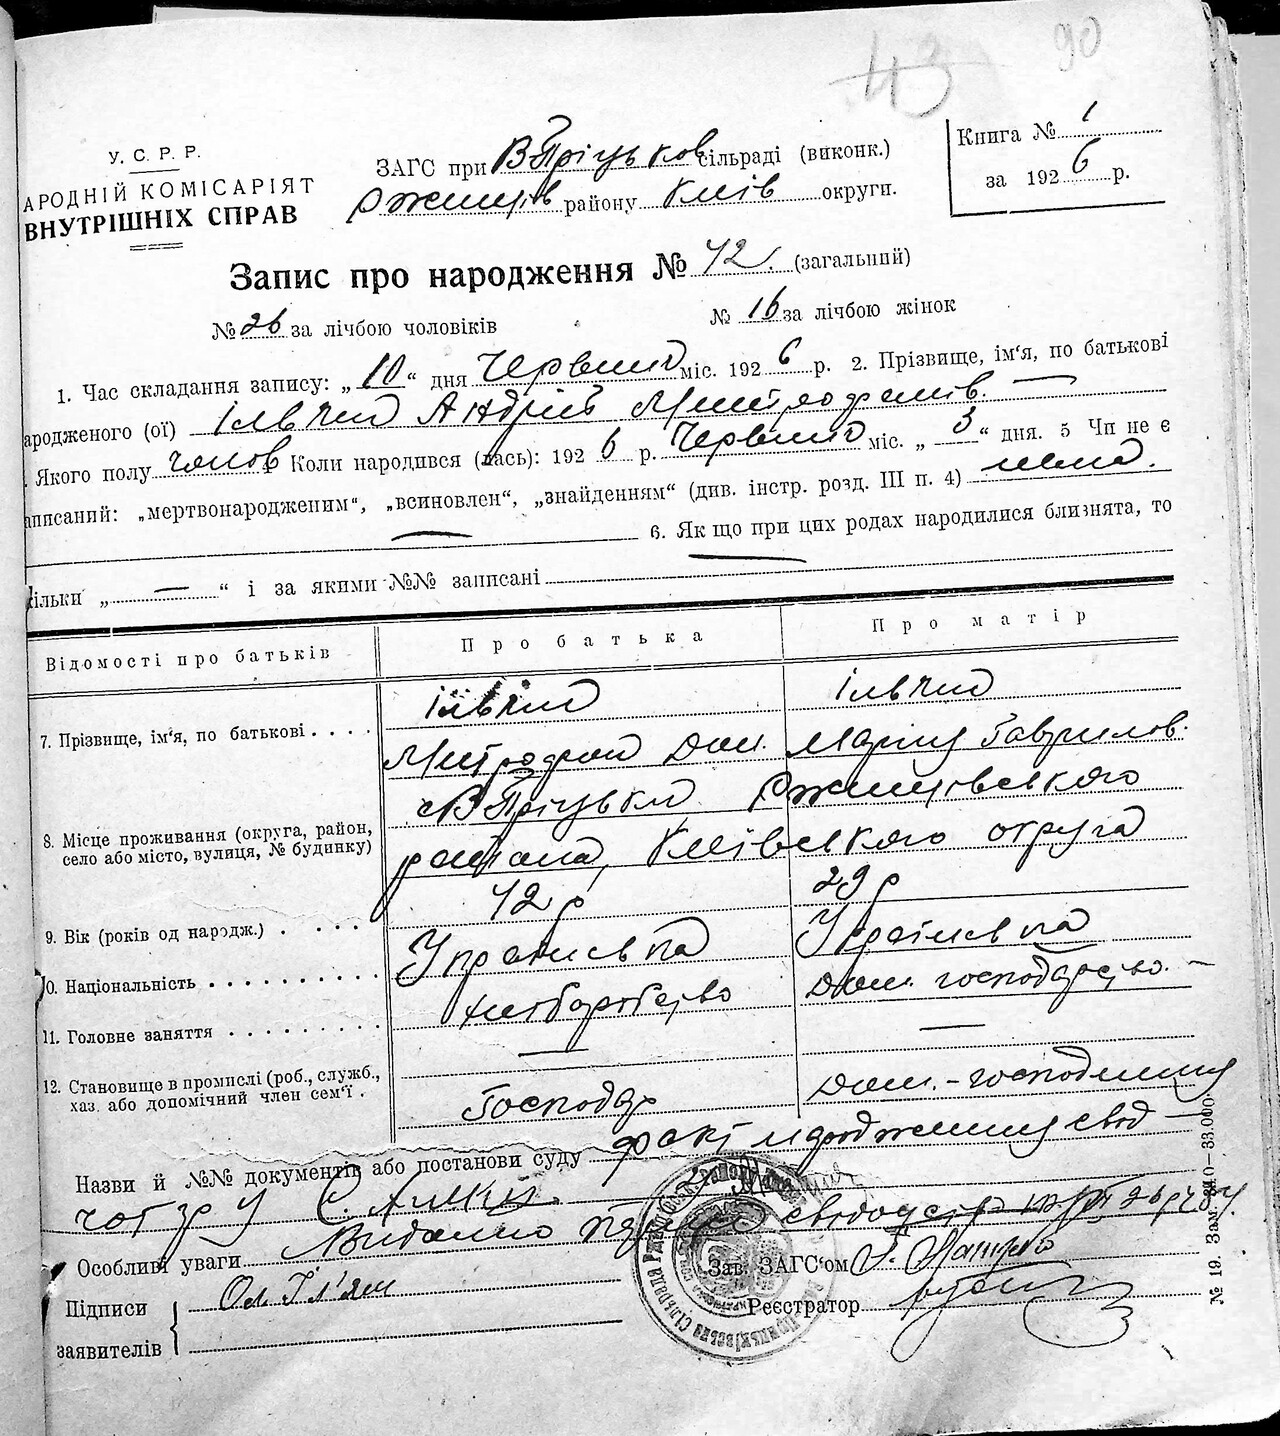 43 90
У. С. Р. Р.
АРОДНІЙ КОМІСАРІЯТ
ВНУТРІШНІХ СПРАВ
ЗАГС при В Пріцьков сільраді (виконк.)
Ржищів району Київ округи.
Книга № 1
за 1926 р.
Запис про народження № 42. (загальний)
№ 26 за лічбою чоловіків № 16 за лічбою жінок
1. Час складання запису: „10“ дня Червня міс. 1926 р. 2. Прізвище, ім‘я, по батькові
ародженого (ої) Ільчин Андрій Митрофанів. —
. Якого полу чолов Коли народився (лась): 1926 р. Червня міс. „3“ дня. 5 Чи не є
аписаний: „мертвонародженим“, „всиновлен“, „знайденням“ (див. інстр. розд. III п. 4) нема.
— 6. Як що при цих родах народилися близнята, то
кільки „—“ і за якими №№ записані —
Відомості про батьків Про батька Про матір
7. Прізвище, ім‘я, по батькові . . . . Ільчин Ільчин
Митрофан Дам. Марія Гаврилов.
8. Місце проживання (округа, район, село або місто, вулиця, № будинку) с В Пріцьки Ржищівського
района, Київського округа
9. Вік (років од народж.) . . . . 42 р 29 р
0. Національність . . . . . . . Українська Українська
11. Головне заняття . . . . . . . . . хліборобство дом. господарство. —
12. Становище в промислі (роб., служб., хаз. або допомічний член сем‘ї . — —
Господар дом.-господиня
Назви й №№ документів або постанови суду факт народження свод —
Особливі уваги Видано
Підписи
заявителів
Зав. ЗАГС‘ом
Реєстратор
№ 19. Зам. 3810—33.000.